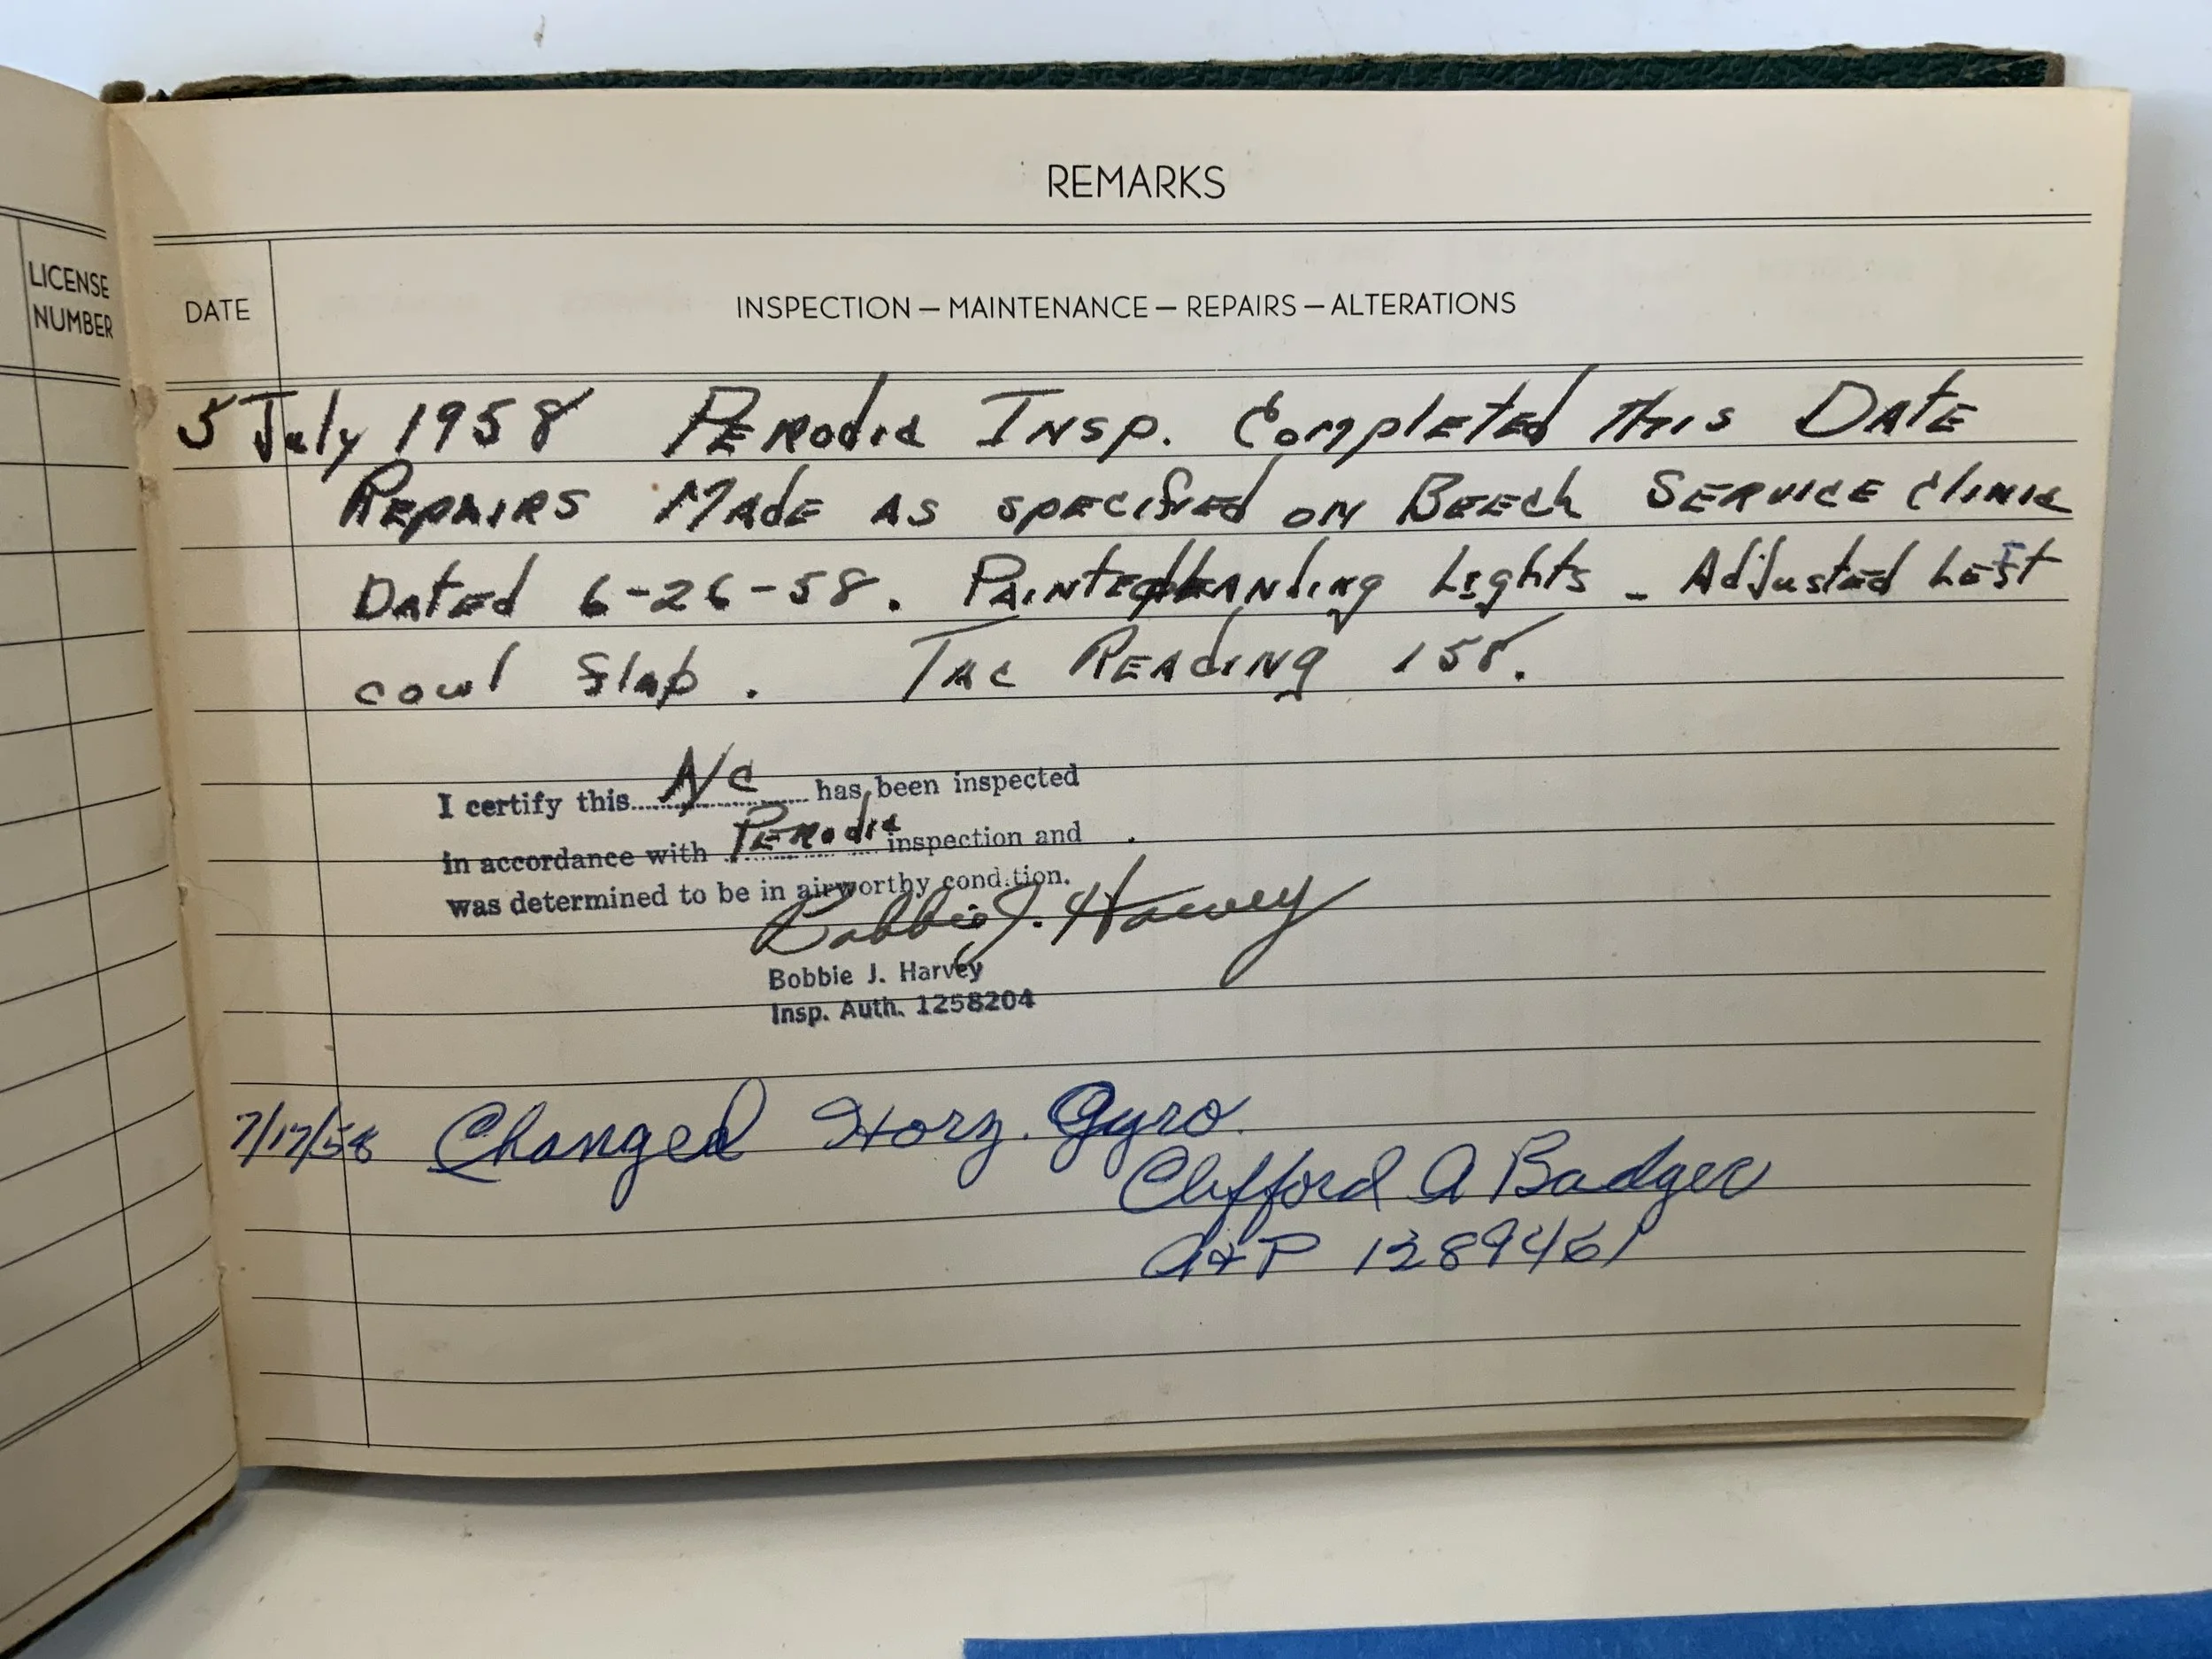 LICENSE
NUMBER
REMARKS
DATE
INSPECTION — MAINTENANCE — REPAIRS — ALTERATIONS
5 July 1958 Periodic Insp. Completed this Date
Repairs Made as specified on Beech Service Clinic
Dated 6-26-58. Painted Landing Lights - Adjusted Left
cowl flap. Tac Reading 158.
I certify this A/C has been inspected
in accordance with Periodic inspection and
was determined to be in airworthy condition.
Bobbie J. Harvey
Bobbie J. Harvey
Insp. Auth. 1258204
7/17/58 Changed Horz. Gyro.
Clifford A Badger
A+P 1289461